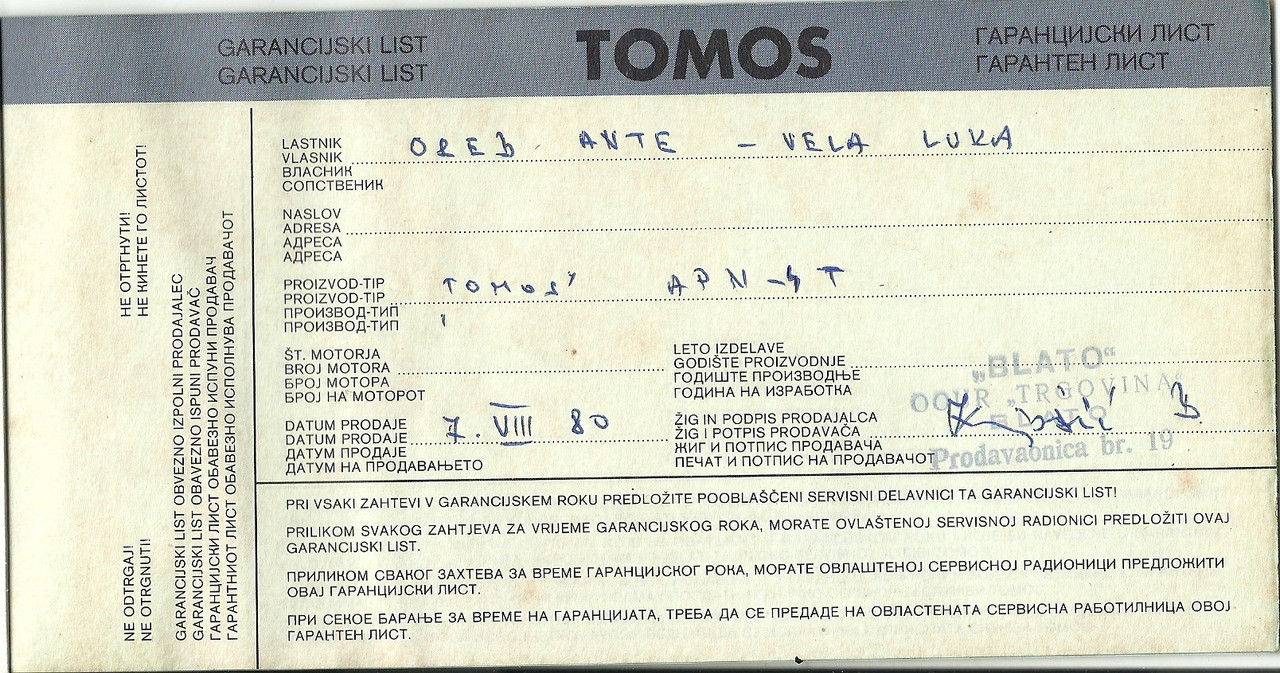 GARANCIJSKI LIST
GARANCIJSKI LIST
TOMOS
ГАРАНЦИЈСКИ ЛИСТ
ГАРАНТЕН ЛИСТ
НЕ ОТРГНУТИ!
НЕ КИНЕТЕ ГО ЛИСТОТ!
NE ODTRGAJ!
NE OTRGNUTI!
GARANCIJSKI LIST OBVEZNO IZPOLNI PRODAJALEC
GARANCIJSKI LIST OBAVEZNO ISPUNI PRODAVAČ
ГАРАНЦИЈСКИ ЛИСТ ОБАВЕЗНО ИСПУНИ ПРОДАВАЧ
ГАРАНТНИОТ ЛИСТ ОБАВЕЗНО ИСПОЛНУВА ПРОДАВАЧОТ
LASTNIK
VLASNIK
ВЛАСНИК
СОПСТВЕНИК
OREB ANTE - VELA LUKA
NASLOV
ADRESA
АДРЕСА
АДРЕСА
PROIZVOD-TIP
PROIZVOD-TIP
ПРОИЗВОД-ТИП
ПРОИЗВОД-ТИП
TOMOS APN-4T
ŠT. MOTORJA
BROJ MOTORA
БРОЈ МОТОРА
БРОЈ НА МОТОРОТ
LETO IZDELAVE
GODIŠTE PROIZVODNJE
ГОДИШТЕ ПРОИЗВОДЊЕ
ГОДИНА НА ИЗРАБОТКА
DATUM PRODAJE
DATUM PRODAJE
ДАТУМ ПРОДАЈЕ
ДАТУМ НА ПРОДАВАЊЕТО
7. VIII 80
ŽIG IN PODPIS PRODAJALCA
ŽIG I POTPIS PRODAVAČA
ЖИГ И ПОТПИС ПРОДАВАЧА
ПЕЧАТ И ПОТПИС НА ПРОДАВАЧОТ
„BLATO“
OOUR „TRGOVINA“
BLATO
Prodavaonica br. 19
PRI VSAKI ZAHTEVI V GARANCIJSKEM ROKU PREDLOŽITE POOBLAŠČENI SERVISNI DELAVNICI TA GARANCIJSKI LIST!
PRILIKOM SVAKOG ZAHTJEVA ZA VRIJEME GARANCIJSKOG ROKA, MORATE OVLAŠTENOJ SERVISNOJ RADIONICI PREDLOŽITI OVAJ
GARANCIJSKI LIST.
ПРИЛИКОМ СВАКОГ ЗАХТЕВА ЗА ВРЕМЕ ГАРАНЦИЈСКОГ РОКА, МОРАТЕ ОВЛАШТЕНОЈ СЕРВИСНОЈ РАДИОНИЦИ ПРЕДЛОЖИТИ
ОВАЈ ГАРАНЦИЈСКИ ЛИСТ.
ПРИ СЕКОЕ БАРАЊЕ ЗА ВРЕМЕ НА ГАРАНЦИЈАТА, ТРЕБА ДА СЕ ПРЕДАДЕ НА ОВЛАСТЕНАТА СЕРВИСНА РАБОТИЛНИЦА ОВОЈ
ГАРАНТЕН ЛИСТ.